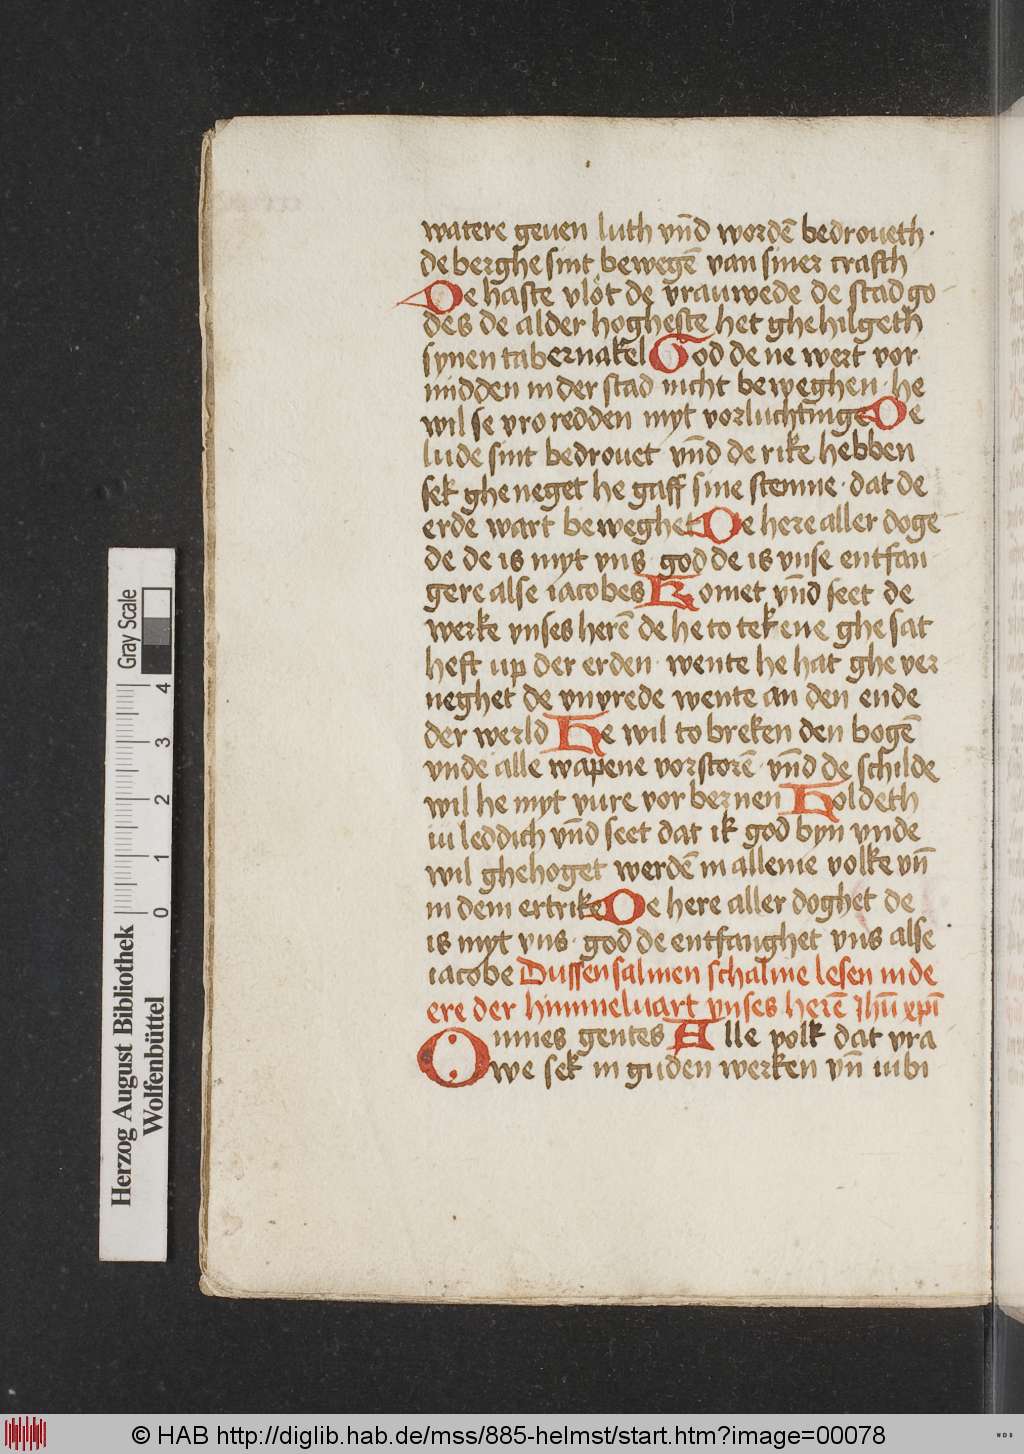 watere geuen luth vn̄d wordē bedroueth·
de berghe sint bewegē van siner crafth
De haste vlöt de vrauwede de stad go
des de alder hogheste het ghehilgeth
synen tabernakel God de ne wert vor
midden in der stad nicht beweghen· he
wil se vro redden myt vorluchtinge De
lude sint bedrouet vn̄d de rike hebben
sek gheneget he gaff sine stemne· dat de
erde wart beweghet De here aller doge
de de is myt vns god de is vnse entfan
gere alse iacobes Komet vn̄d seet de
werke vnses herē de he to tekene ghesat
heft up der erden· wente he hat ghever
neghet de vnvrede wente an den ende
der werld He wil tobreken den bogē
vnde alle wapene vorstorē· vn̄d de schilde
wil he myt vure vorbernen Holdeth
iu leddich vn̄d seet dat ik god byn vnde
wil ghehoget werdē in alleme volke vn̄
in dem ertrike De here aller doghet de
is myt vns· god de entfanghet vns alse
iacobe Dussen salmen schalme lesen in de
ere der himmeluart vnses herē Jhū xp̄i
Omnes gentes Alle volk dat vra
we sek in guden werken vn̄ iubi
Herzog August Bibliothek
Wolfenbüttel
0 1 2 3 4
Gray Scale
© HAB http://diglib.hab.de/mss/885-helmst/start.htm?image=00078
WDB